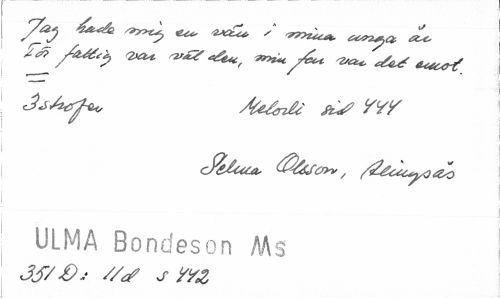 Jag hade mig en vän i mina unga år
För fattig var väl den, min far var det emot.
=
3 strofer Melodi sid 444
Selma Olsson, Alingsås
ULMA Bondeson Ms
351 D: 11d s 442